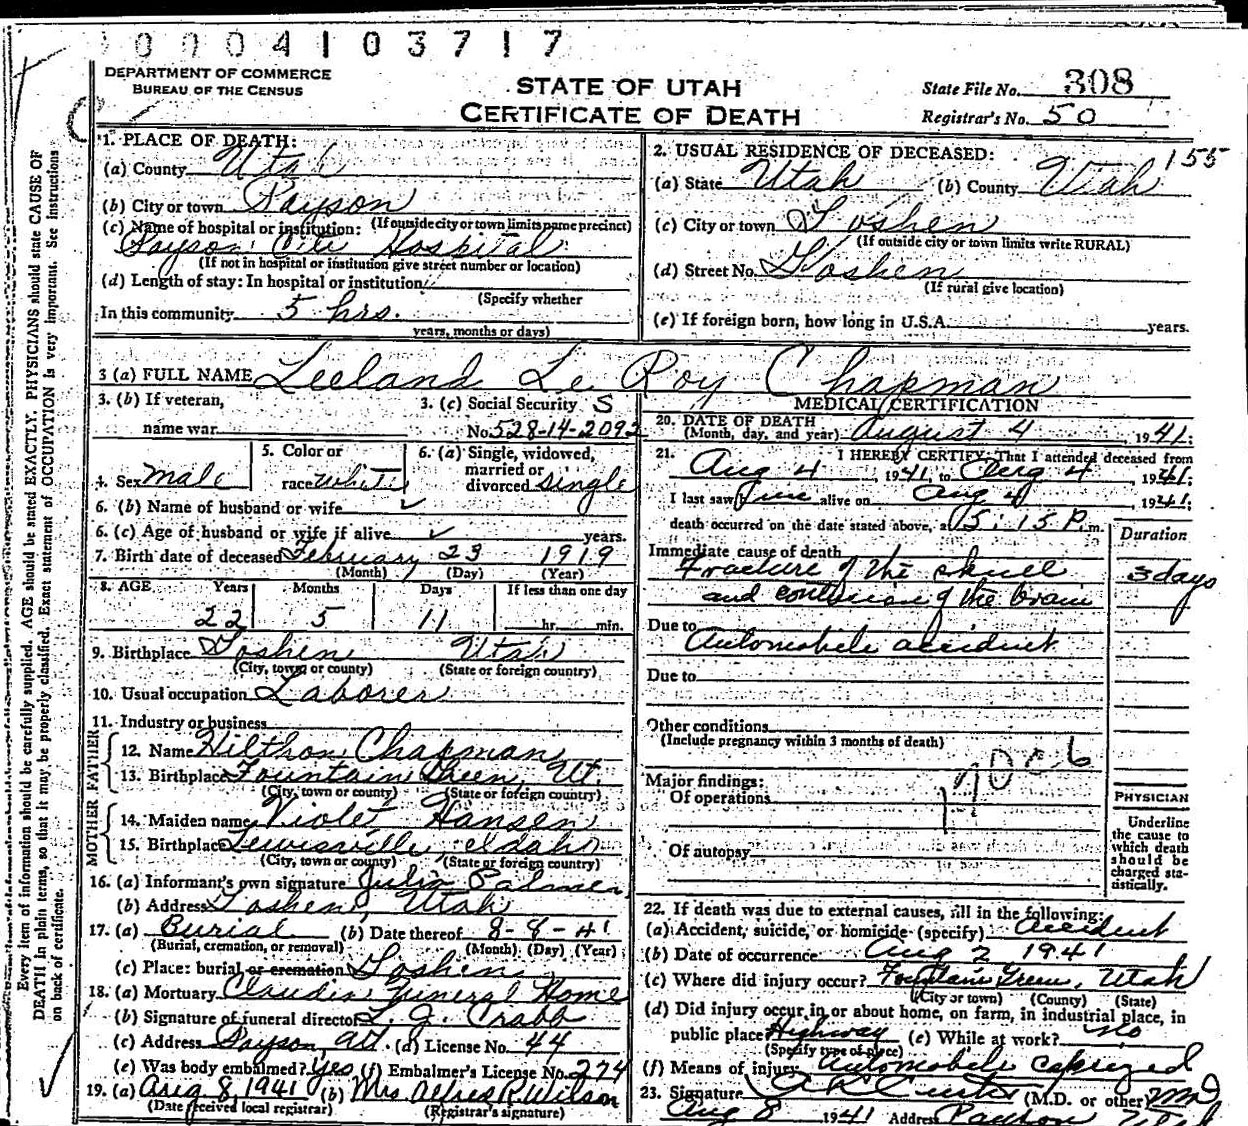 0004103717
DEPARTMENT OF COMMERCE
BUREAU OF THE CENSUS
STATE OF UTAH
CERTIFICATE OF DEATH
State File No. 308
Registrar's No. 50
155
1. PLACE OF DEATH:
(a) County Utah
(b) City or town Payson
(If outside city or town limits name precinct)
(c) Name of hospital or institution:
Payson City Hospital
(If not in hospital or institution give street number or location)
(d) Length of stay: In hospital or institution
(Specify whether
In this community 5 hrs.
years, months or days)
2. USUAL RESIDENCE OF DECEASED:
(a) State Utah (b) County Utah
(c) City or town Goshen
(If outside city or town limits write RURAL)
(d) Street No. Goshen
(If rural give location)
(e) If foreign born, how long in U.S.A. years.
3 (a) FULL NAME Leeland Le Roy Chapman
3. (b) If veteran,
name war
3. (c) Social Security S
No. 528-14-2092
4. Sex Male
5. Color or
race White
6. (a) Single, widowed,
married or
divorced Single
6. (b) Name of husband or wife ✓
6. (c) Age of husband or wife if alive ✓ years.
7. Birth date of deceased February 23 1919
(Month) (Day) (Year)
8. AGE Years Months Days If less than one day
22 5 11 hr. min.
9. Birthplace Goshen Utah
(City, town or county) (State or foreign country)
10. Usual occupation Laborer
11. Industry or business
FATHER
12. Name Hilthon Chapman
13. Birthplace Fountain Green, Ut.
(City, town or county) (State or foreign country)
MOTHER
14. Maiden name Violet Hansen
15. Birthplace Lewisville, Idaho
(City, town or county) (State or foreign country)
16. (a) Informant's own signature Julia Palmer
(b) Address Goshen, Utah
17. (a) Burial (b) Date thereof 8-8-41
(Burial, cremation, or removal) (Month) (Day) (Year)
(c) Place: burial or cremation Goshen
18. (a) Mortuary Claudin Funeral Home
(b) Signature of funeral director L. J. Crabb
(c) Address Payson, Ut. (d) License No. 44
(e) Was body embalmed? Yes (f) Embalmer's License No. 274
19. (a) Aug. 8, 1941 (b) Mrs Alfred R. Wilson
(Date received local registrar) (Registrar's signature)
MEDICAL CERTIFICATION
20. DATE OF DEATH
(Month, day, and year) August 4, 1941:
21. I HEREBY CERTIFY, That I attended deceased from
Aug 4, 1941, to Aug 4, 1941;
I last saw him alive on Aug 4 1941;
death occurred on the date stated above, at 5:15 P.m.
Duration
Immediate cause of death
Fracture of the skull 3 days
and contusion of the brain
Due to
Automobile accident
Due to
Other conditions
(Include pregnancy within 3 months of death)
Major findings:
Of operations
Of autopsy
PHYSICIAN
Underline
the cause to
which death
should be
charged sta-
tistically.
22. If death was due to external causes, fill in the following:
(a) Accident, suicide, or homicide (specify) Accident
(b) Date of occurrence Aug 2 1941
(c) Where did injury occur? Fountain Green, Utah
(City or town) (County) (State)
(d) Did injury occur in or about home, on farm, in industrial place, in
public place Highway (e) While at work? no
(Specify type of place)
(f) Means of injury Automobile capsized
23. Signature A. L. Curtis (M.D. or other) MD
Aug 8 1941 Address Payson Utah
Every item of information should be carefully supplied. AGE should be stated EXACTLY. PHYSICIANS should state CAUSE OF
DEATH in plain terms, so that it may be properly classified. Exact statement of OCCUPATION is very important. See instructions
on back of certificate.